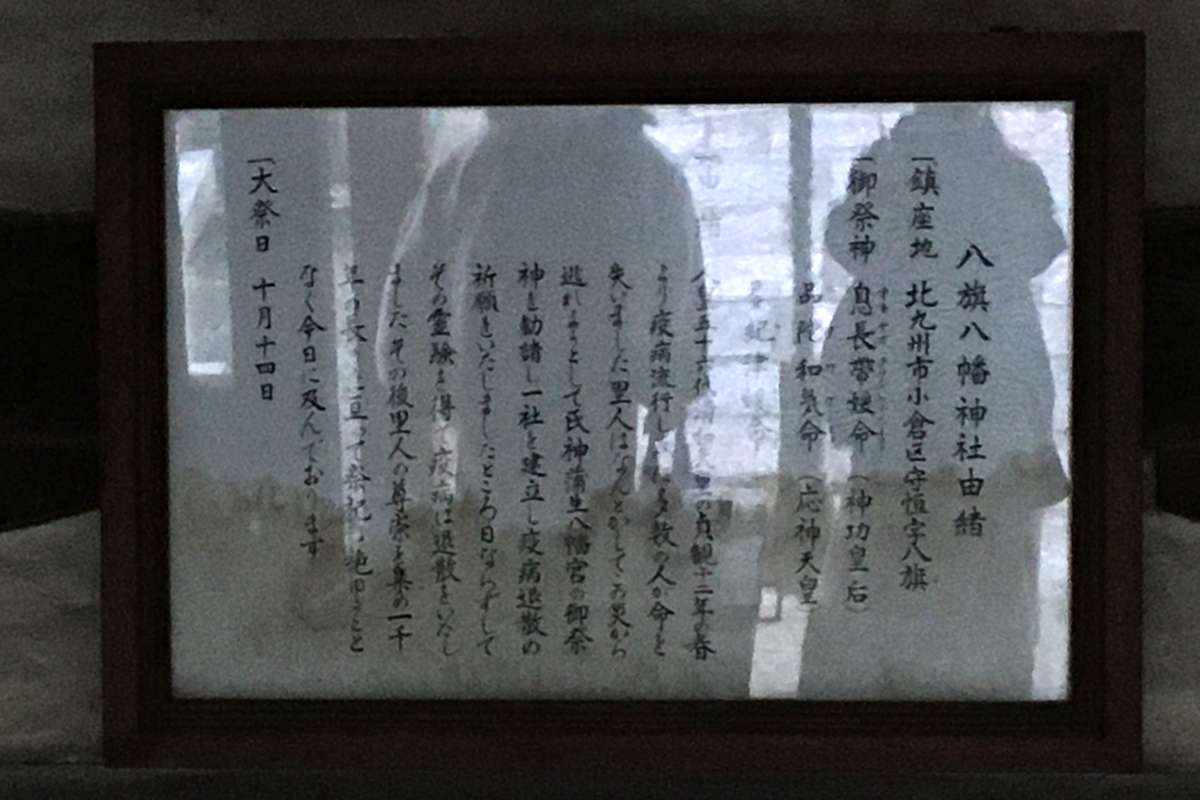 八旗八幡神社由緒
一鎮座地 北九州市小倉区守恒字八旗
一御祭神 息長帯媛命（神功皇后）
品陀和気命（応神天皇
紀 命
人皇五十六代清和天皇の貞観十二年の春
より疫病流行し 多数の人が命を
失いました里人はなんとかしてこの災から
逃れようとして氏神蒲生八幡宮の御祭
神を勧請し一社を建立し疫病退散の
祈願をいたしましたところ日ならずして
その霊験を得て疫病は退散をいたし
ましたその後里人の尊崇を集め一千
年の長きに亘って祭祀 絶ゆること
なく今日に及んでおります
一大祭日 十月十四日